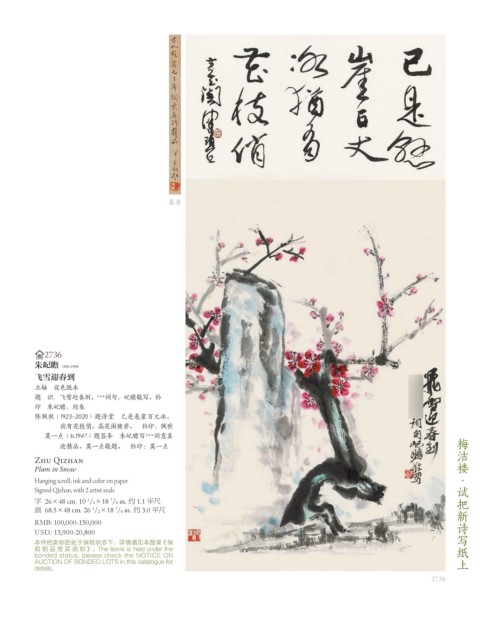 已是悬
崖百丈
冰犹有
花枝俏
高花阁佩秋
签条
2736
朱屺瞻 1892-1996
飞雪迎春到
立轴 设色纸本
题 识 飞雪迎春到,***词句,屺瞻敬写,钤
印 朱屺瞻、迎春
陈佩秋(1923-2020)题诗堂 已是悬崖百丈冰,
犹有花枝俏,高花阁健碧。 钤印:佩秋
莫一点(b.1947)题签条 朱屺瞻写***词意真
迹精品,莫一点敬题。 钤印:莫一点
ZHU QIZHAN
Plum in Snow
Hanging scroll; ink and color on paper
Signed Qizhan, with 2 artist seals
字 26×48 cm. 10 1/4×18 7/8 in. 约 1.1 平尺
画 68.5×48 cm. 26 1/2×18 7/8 in. 约 3.0 平尺
RMB: 100,000-150,000
USD: 13,900-20,800
本件拍卖标的处于保税状态下,详情请见本图录《保
税拍品竞买须知》。The items is held under the
bonded status, please check the NOTICE ON
AUCTION OF BONDED LOTS in this catalogue for
details.
飞雪迎春到
词句屺瞻敬写
梅洁楼·试把新诗写纸上
2736